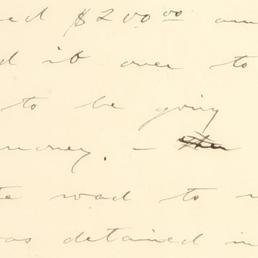 ed $200.00 am
d it over to
to be going
money. -
te wad to
as detained in